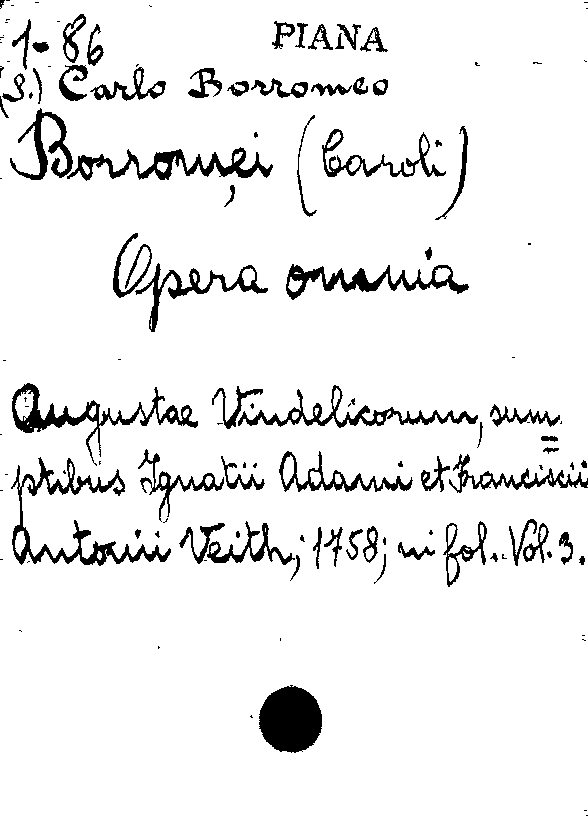 1-86 PIANA
(S.) Carlo Borromeo
Borromei (Caroli)
Opera omnia
Augustae Vindelicorum, sum=
ptibus Ignatii Adami et Franciscii
Antonii Veith; 1758; in fol. Vol. 3.